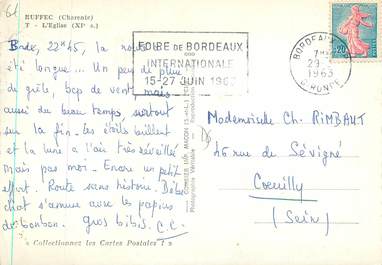 61
RUFFEC (Charente)
T - L'Eglise (XIe s.)
Bordx, 22h45, la route
été longue... Un peu de pluie
de grêle, bcp de vent mais
aussi du beau temps, surtout
sur la fin. les étoiles brillent
et la lune a l'air très réveillée
mais pas moi - Encore un petit
effort. Route sans histoire.
chat s'amuse avec les papiers
de bonbon. gros bibis. C.C.
« Collectionnez les Cartes Postales ! »
FOIRE DE BORDEAUX
INTERNATIONALE
15-27 JUIN 1963
BORDEAUX
1963
GIRONDE
0,20
COMBIER IMP. MACON
Photographie Véritable
Mademoiselle Ch. RIMBAUT
46 rue de Sévigné
Coeuilly
(Seine)